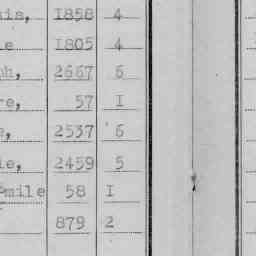 nis, 1858 4
le 1805 4
ph, 2667 6
re, 57 I
e, 2537 6
ie, 2459 5
mile 58 I
879 2